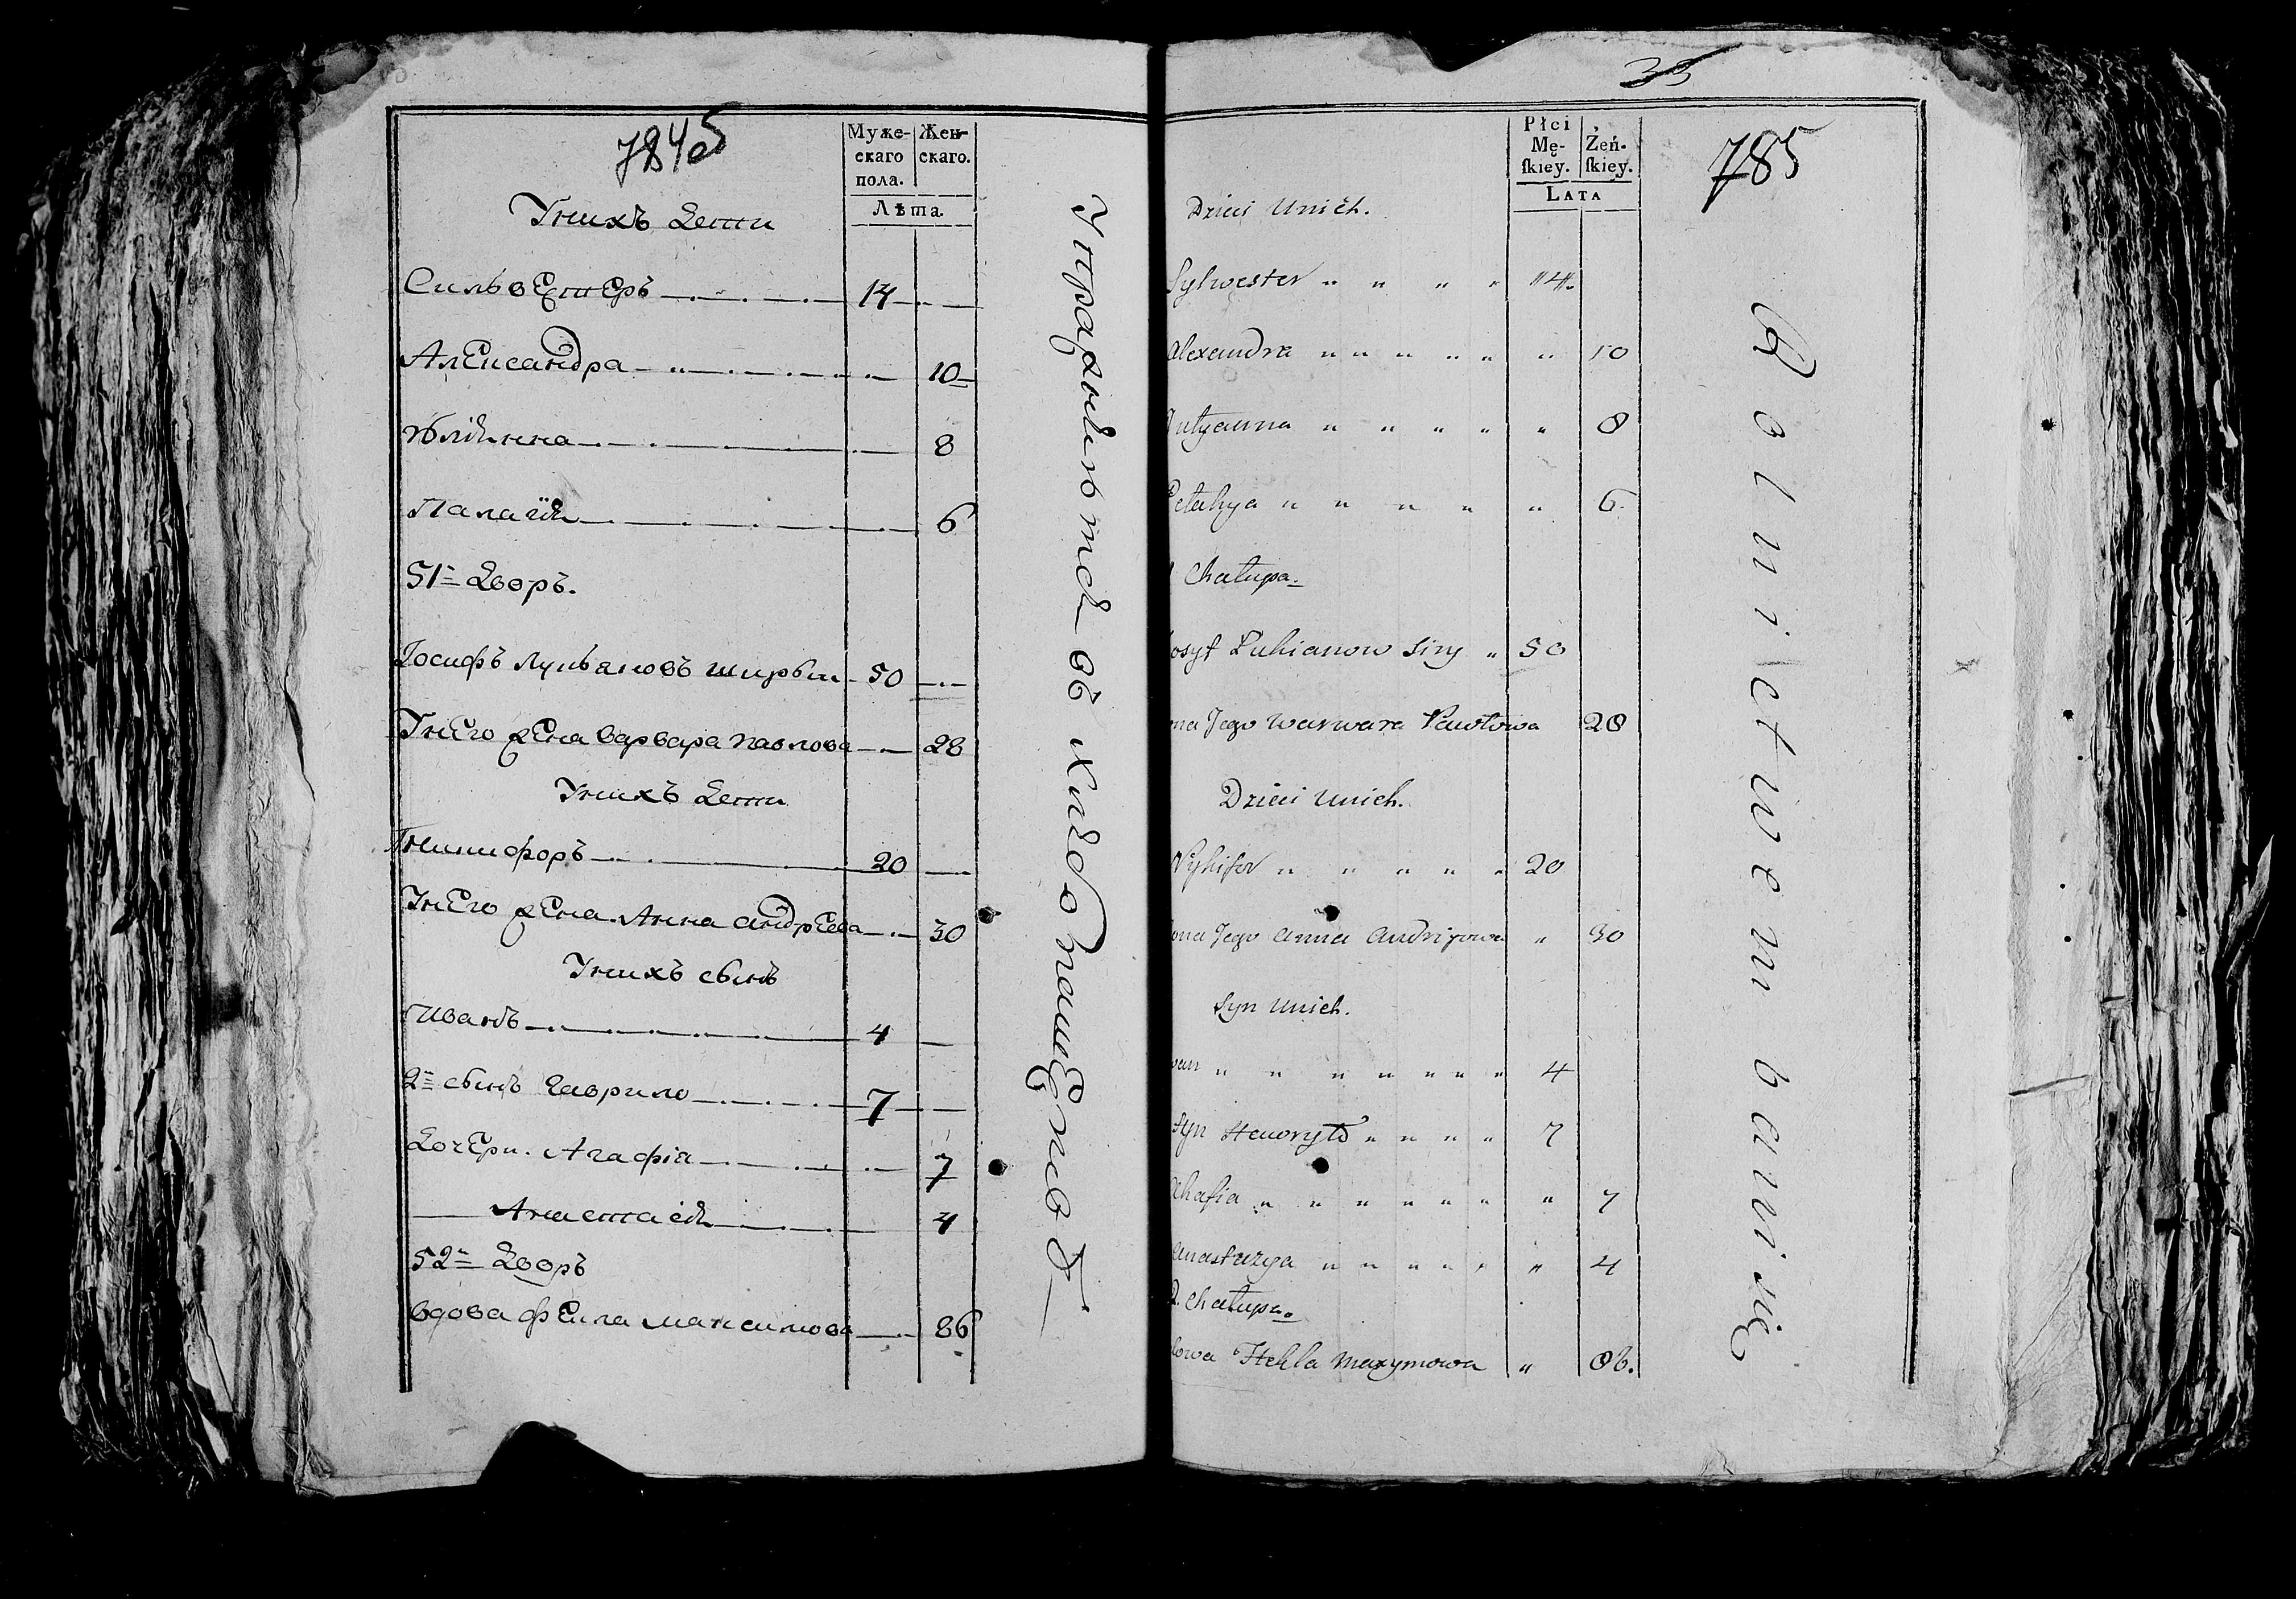 784об
Муже-
скаго
пола.
Жен-
скаго.
Лѣта.
У нихъ Дети
Сильвестеръ 14
Александра 10
Юлiянна 8
Палагiя 6
51й Дворъ.
Iосифъ Лукьяновъ 50
У него жена варвара павлова 28
У нихъ Дети
Никифоръ 20
У него жена Анна андреева 30
У нихъ сынъ
Иванъ 4
2й сынъ Гаврило 7
Дочери. Агафiя 7
Анастасiя 4
52й Дворъ
вдова фекла максимова 86
Упражняется въ хлебопашестве
33
785
Płci
Mę-
skiey.
Żeń-
skiey.
LATA
Dzieci Unich.
Sylwester 14.
Alexandra " 10
Julyanna " 8
Pelahya " 6
Chałupa.
osyf Łukianow Siry " 50
na Jego Warwara Pawłowa 28
Dzieci Unich.
Nykifor 20
ona Jego Anna Andrijowa " 30
Syn Unich.
wan 4
Syn Hawryło 7
Ahafia " 7
Anastazya " 4
2. Chałupa.
dowa Hekla Maxymowa " 86.
Rolnictwem bawi się